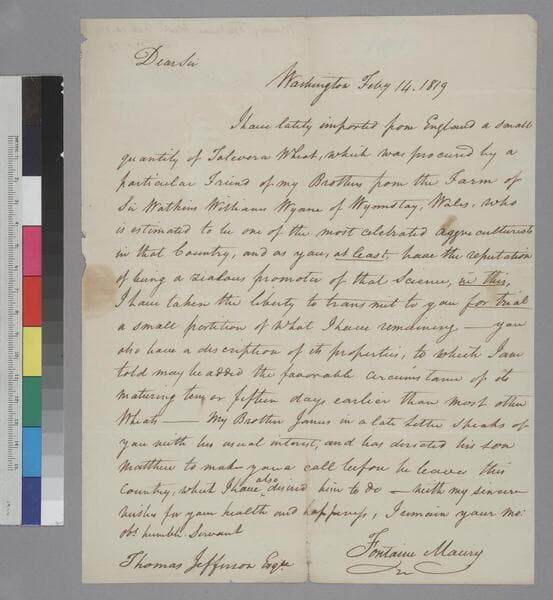 Dear Sir
Washington Feby 14. 1819
I have lately imported from England a small
quantity of Talevera Wheat, which was procured by a
particular Friend of my Brothers from the Farm of
Sir Watkins Williams Wynne of Wynnstay, Wales, who
is estimated to be one of the most celebrated aggriculturists
in that Country, and as you, at least, have the reputation
of being a zealous promoter of that Science, in this,
I have taken the liberty to transmit to you for trial
a small portition of what I have remaining — you
also have a description of its properties, to which I am
told may be added the favorable circumstance of its
maturing ten, or fifteen days earlier than most other
Wheats — My Brother James in a late Letter speaks of
you with his usual interest, and has directed his son
Matthew to make you a call before he leaves this
Country, which I have also desired him to do — with my sincere
wishes for your health and happiness, I remain your mo:
obt humble Servant
Fontaine Maury
Thomas Jefferson Esqre